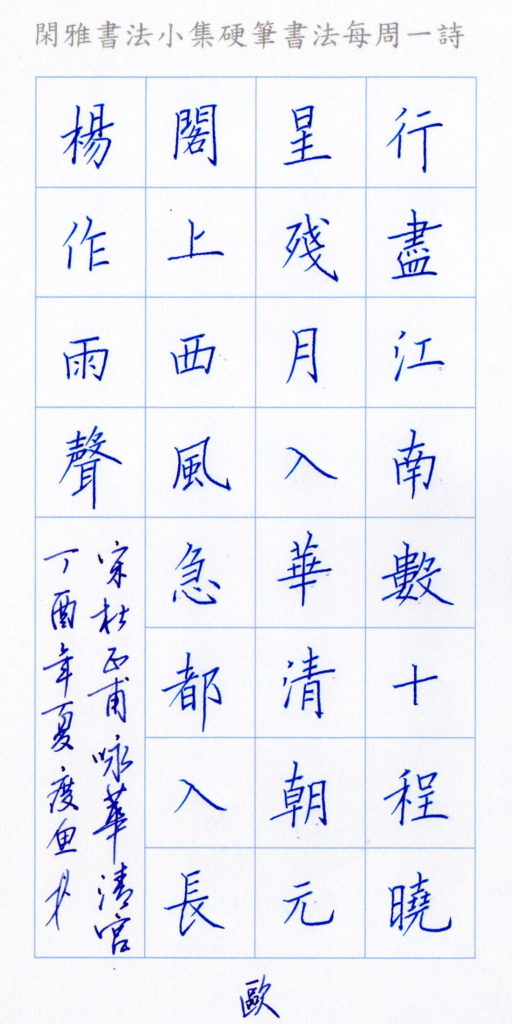 閑雅書法小集硬筆書法每周一詩
行盡江南數十程曉
星殘月入華清朝元
閣上西風急都入長
楊作雨聲
宋杜正甫咏華清宮
丁酉年夏度魚
歐